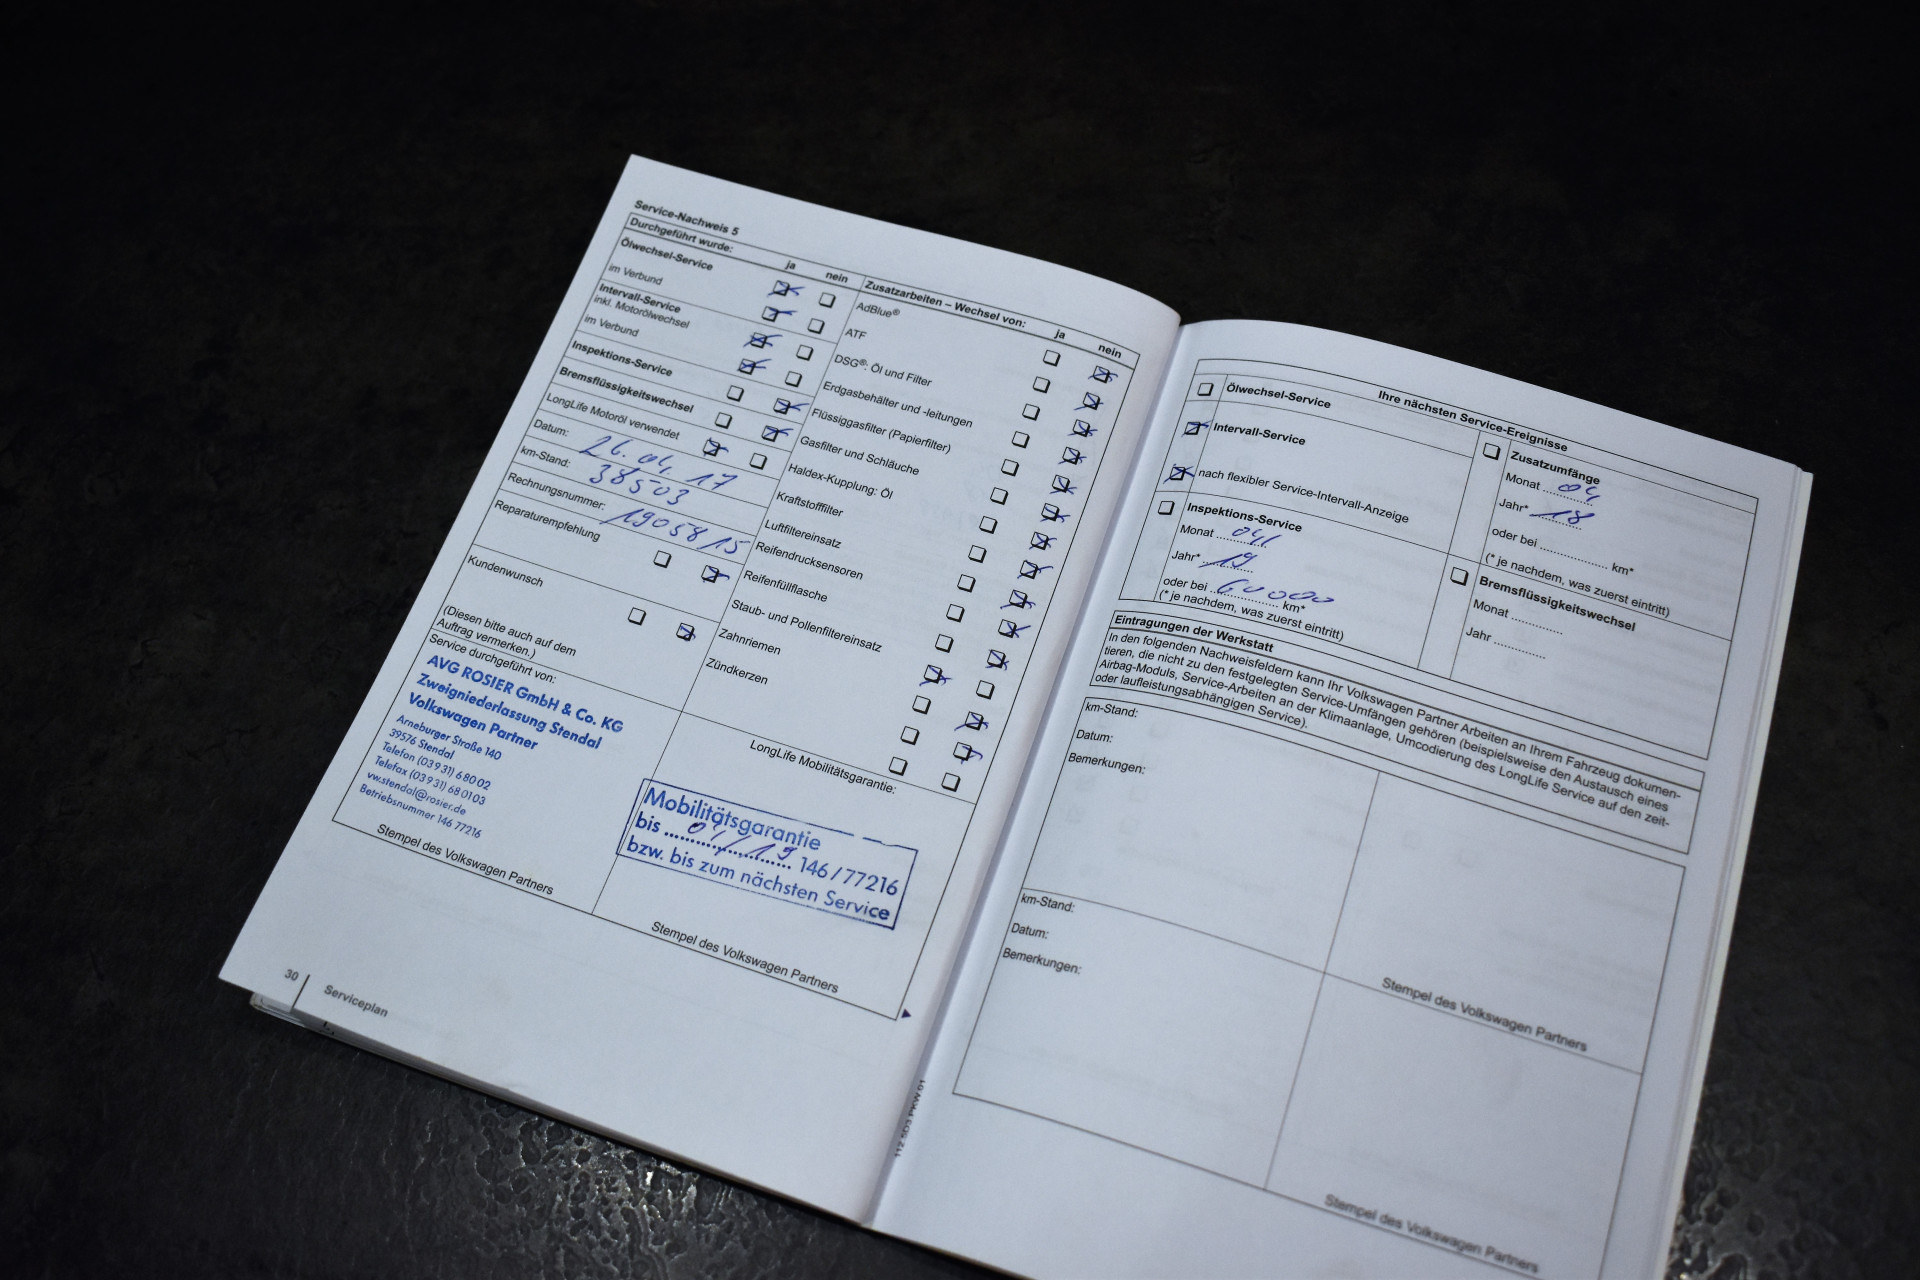 Service-Nachweis 5
Durchgeführt wurde:
ja nein
Ölwechsel-Service
im Verbund
Intervall-Service
inkl. Motorölwechsel
im Verbund
Inspektions-Service
Bremsflüssigkeitswechsel
LongLife Motoröl verwendet
Datum: 26.04.17
km-Stand: 38503
Rechnungsnummer: 19058/15
Reparaturempfehlung
Kundenwunsch
(Diesen bitte auch auf dem
Auftrag vermerken.)
Service durchgeführt von:
AVG ROSIER GmbH & Co. KG
Zweigniederlassung Stendal
Volkswagen Partner
Arneburger Straße 140
39576 Stendal
Telefon (03931) 68002
Telefax (03931) 680103
vw.stendal@rosier.de
Betriebsnummer 146 77216
Stempel des Volkswagen Partners
Zusatzarbeiten – Wechsel von:
ja nein
AdBlue®
ATF
DSG®: Öl und Filter
Erdgasbehälter und -leitungen
Flüssiggasfilter (Papierfilter)
Gasfilter und Schläuche
Haldex-Kupplung: Öl
Kraftstofffilter
Luftfiltereinsatz
Reifendrucksensoren
Reifenfüllflasche
Staub- und Pollenfiltereinsatz
Zahnriemen
Zündkerzen
LongLife Mobilitätsgarantie:
Mobilitätsgarantie
bis 04/19 146/77216
bzw. bis zum nächsten Service
Stempel des Volkswagen Partners
30 Serviceplan
Ihre nächsten Service-Ereignisse
Ölwechsel-Service
Intervall-Service
nach flexibler Service-Intervall-Anzeige
Inspektions-Service
Monat 04/
Jahr* 19
oder bei 60000 km*
(* je nachdem, was zuerst eintritt)
Zusatzumfänge
Monat 04
Jahr* 18
oder bei ............... km*
(* je nachdem, was zuerst eintritt)
Bremsflüssigkeitswechsel
Monat ..............
Jahr ..............
Eintragungen der Werkstatt
In den folgenden Nachweisfeldern kann Ihr Volkswagen Partner Arbeiten an Ihrem Fahrzeug dokumen-
tieren, die nicht zu den festgelegten Service-Umfängen gehören (beispielsweise den Austausch eines
Airbag-Moduls, Service-Arbeiten an der Klimaanlage, Umcodierung des LongLife Service auf den zeit-
oder laufleistungsabhängigen Service).
km-Stand:
Datum:
Bemerkungen:
Stempel des Volkswagen Partners
km-Stand:
Datum:
Bemerkungen:
Stempel des Volkswagen Partners